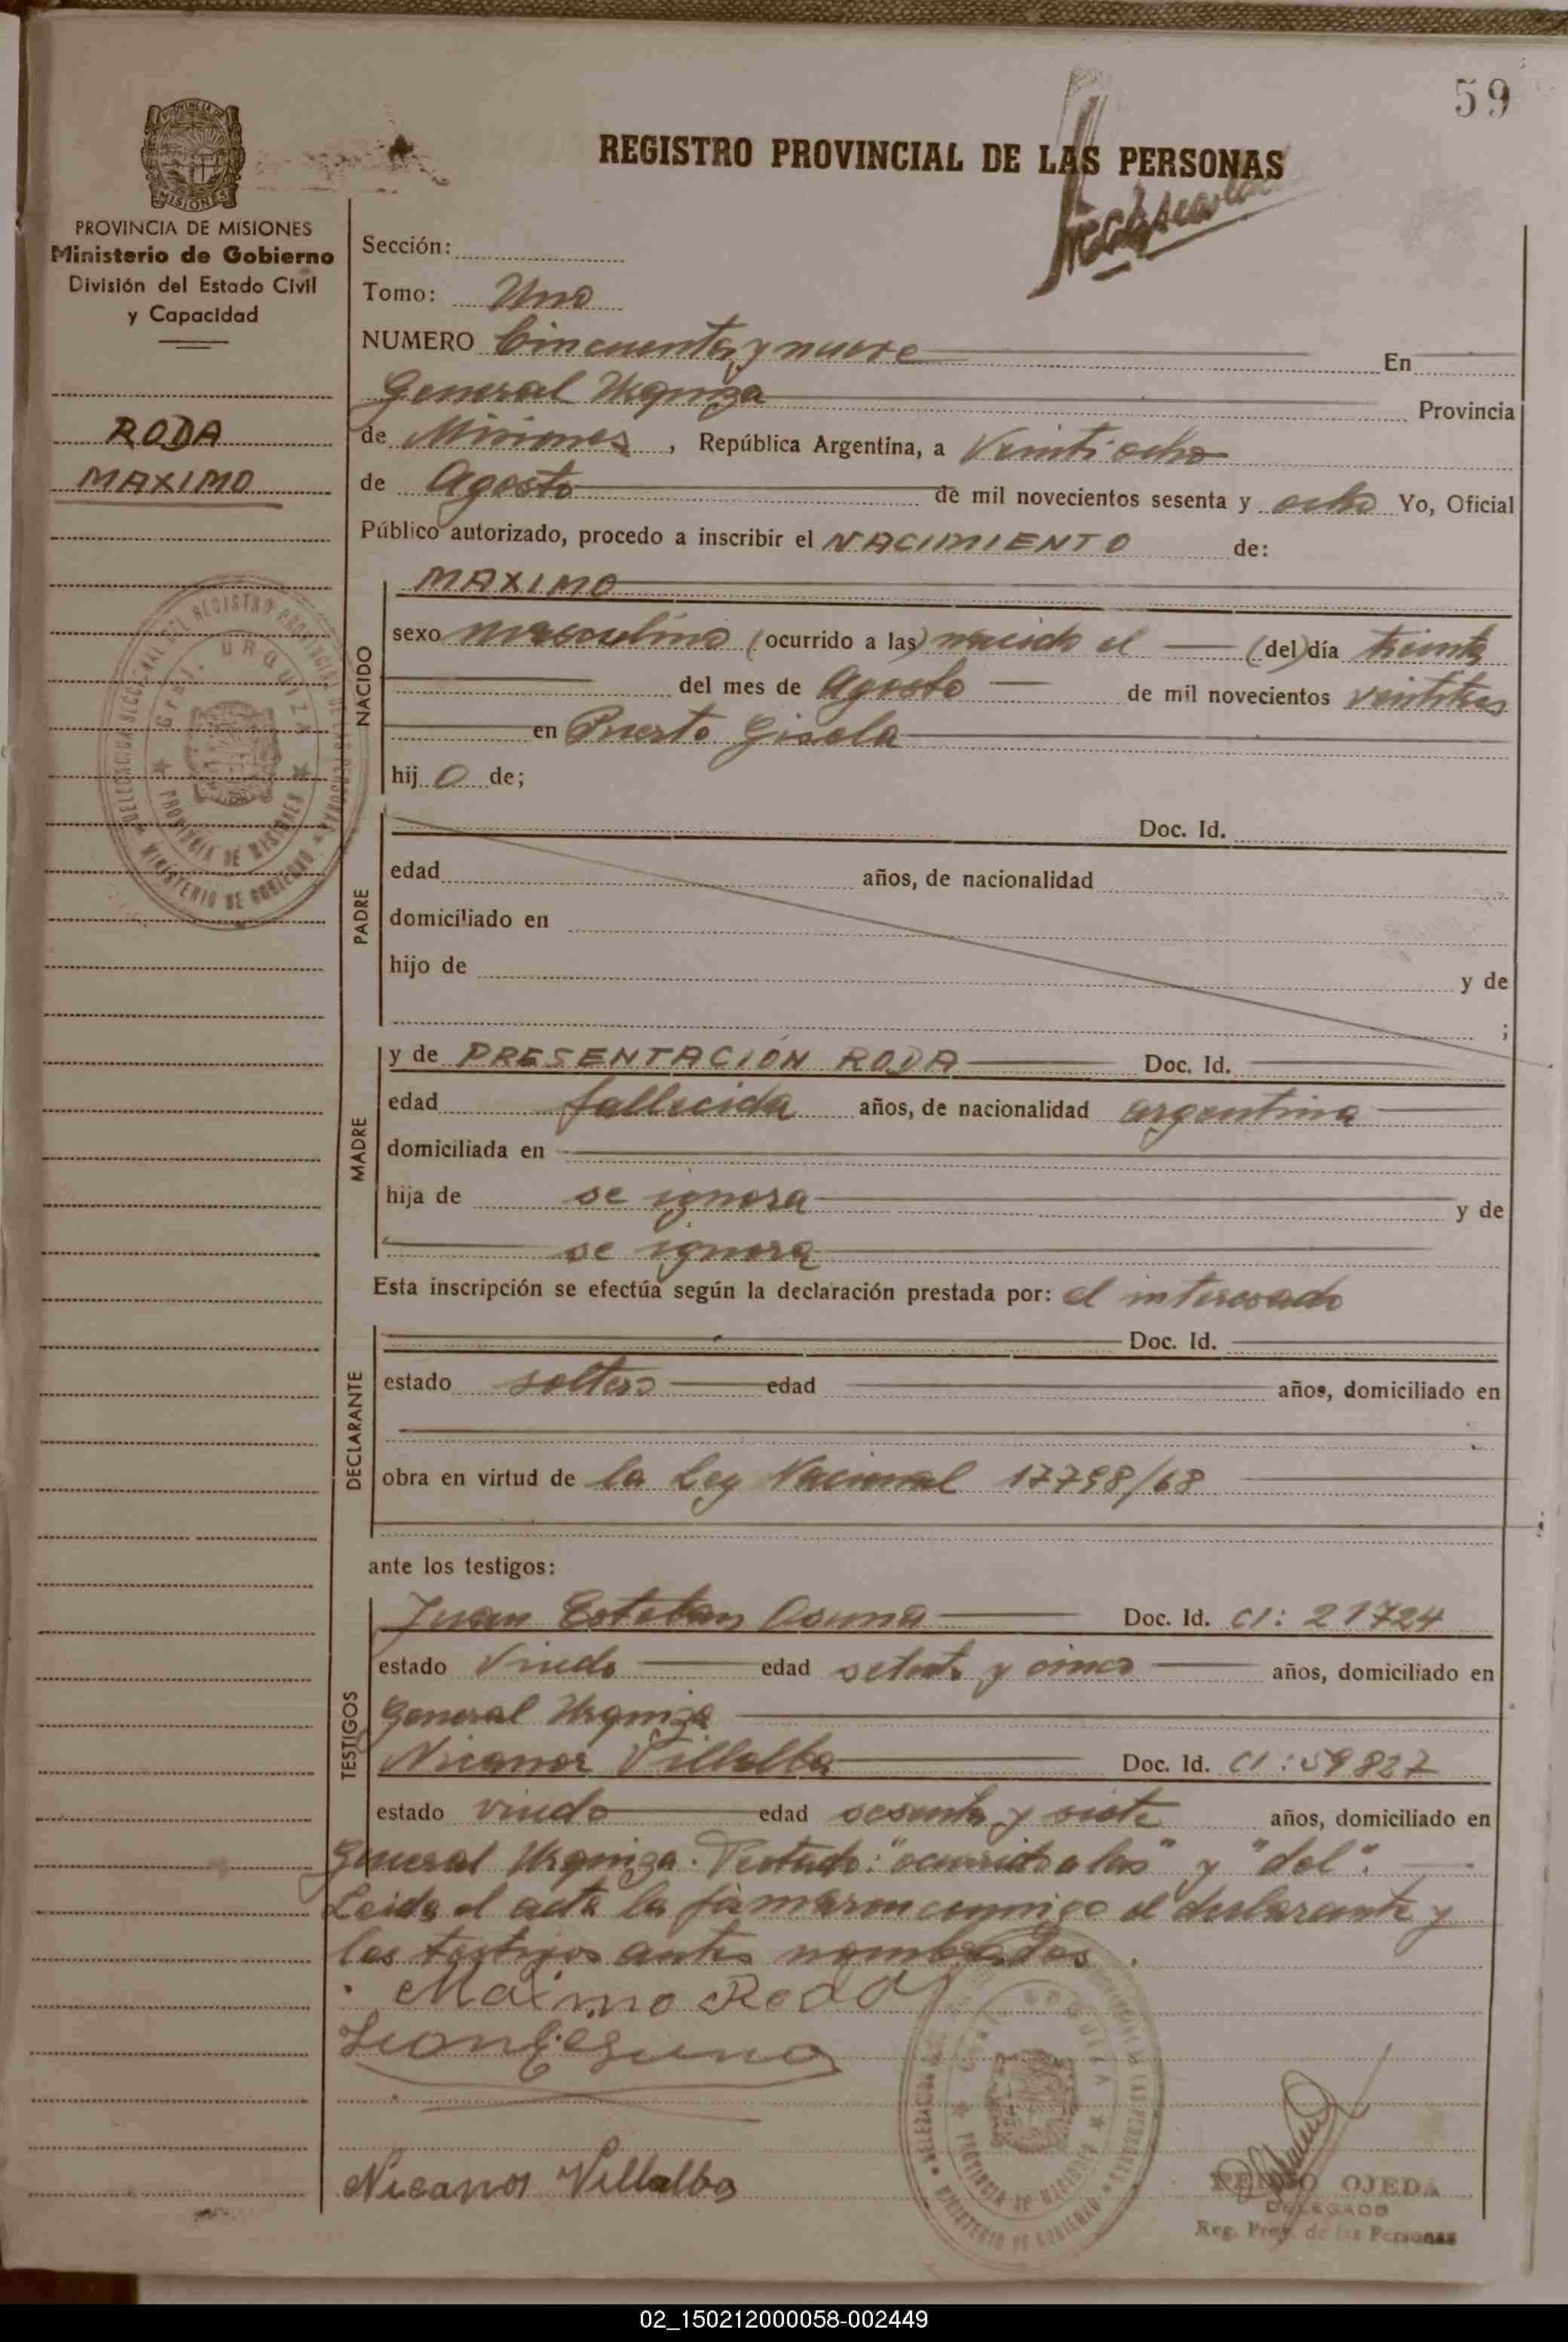 59
PROVINCIA DE MISIONES
MISIONES
REGISTRO PROVINCIAL DE LAS PERSONAS
PROVINCIA DE MISIONES
Ministerio de Gobierno
División del Estado Civil
y Capacidad
RODA
MAXIMO
Sección:
Tomo: Uno
NUMERO Cincuenta y nueve En
General Urquiza Provincia
de Misiones, República Argentina, a Veintiocho
de Agosto de mil novecientos sesenta y ocho Yo, Oficial
Público autorizado, procedo a inscribir el NACIMIENTO de:
NACIDO
MAXIMO
sexo masculino (ocurrido a las) nacido el (del) día treinta
del mes de Agosto de mil novecientos veintitres
en Puerto Gisela
hij o de;
PADRE
Doc. Id.
edad años, de nacionalidad
domiciliado en
hijo de y de
;
MADRE
y de PRESENTACIÓN RODA Doc. Id.
edad fallecida años, de nacionalidad argentina
domiciliada en
hija de se ignora y de
se ignora
Esta inscripción se efectúa según la declaración prestada por: el interesado
DECLARANTE
Doc. Id.
estado soltero edad años, domiciliado en
obra en virtud de la Ley Nacional 17798/68
ante los testigos:
TESTIGOS
Juan Esteban Doc. Id. CI: 21724
estado Viudo edad setenta y cinco años, domiciliado en
General Urquiza
Nicanor Villalba Doc. Id. CI: 59827
estado viudo edad sesenta y siete años, domiciliado en
General Urquiza. Testado: "ocurrido a las" y "del".
Leida el acta la firmaron conmigo el declarante y
los testigos antes nombrados.
Maximo Roda
Nicanor Villalba
GRAL. URQUIZA
PROVINCIA DE MISIONES
MINISTERIO DE GOBIERNO
OJEDA
DELEGADO
Reg. Prov. de las Personas
02_150212000058-002449